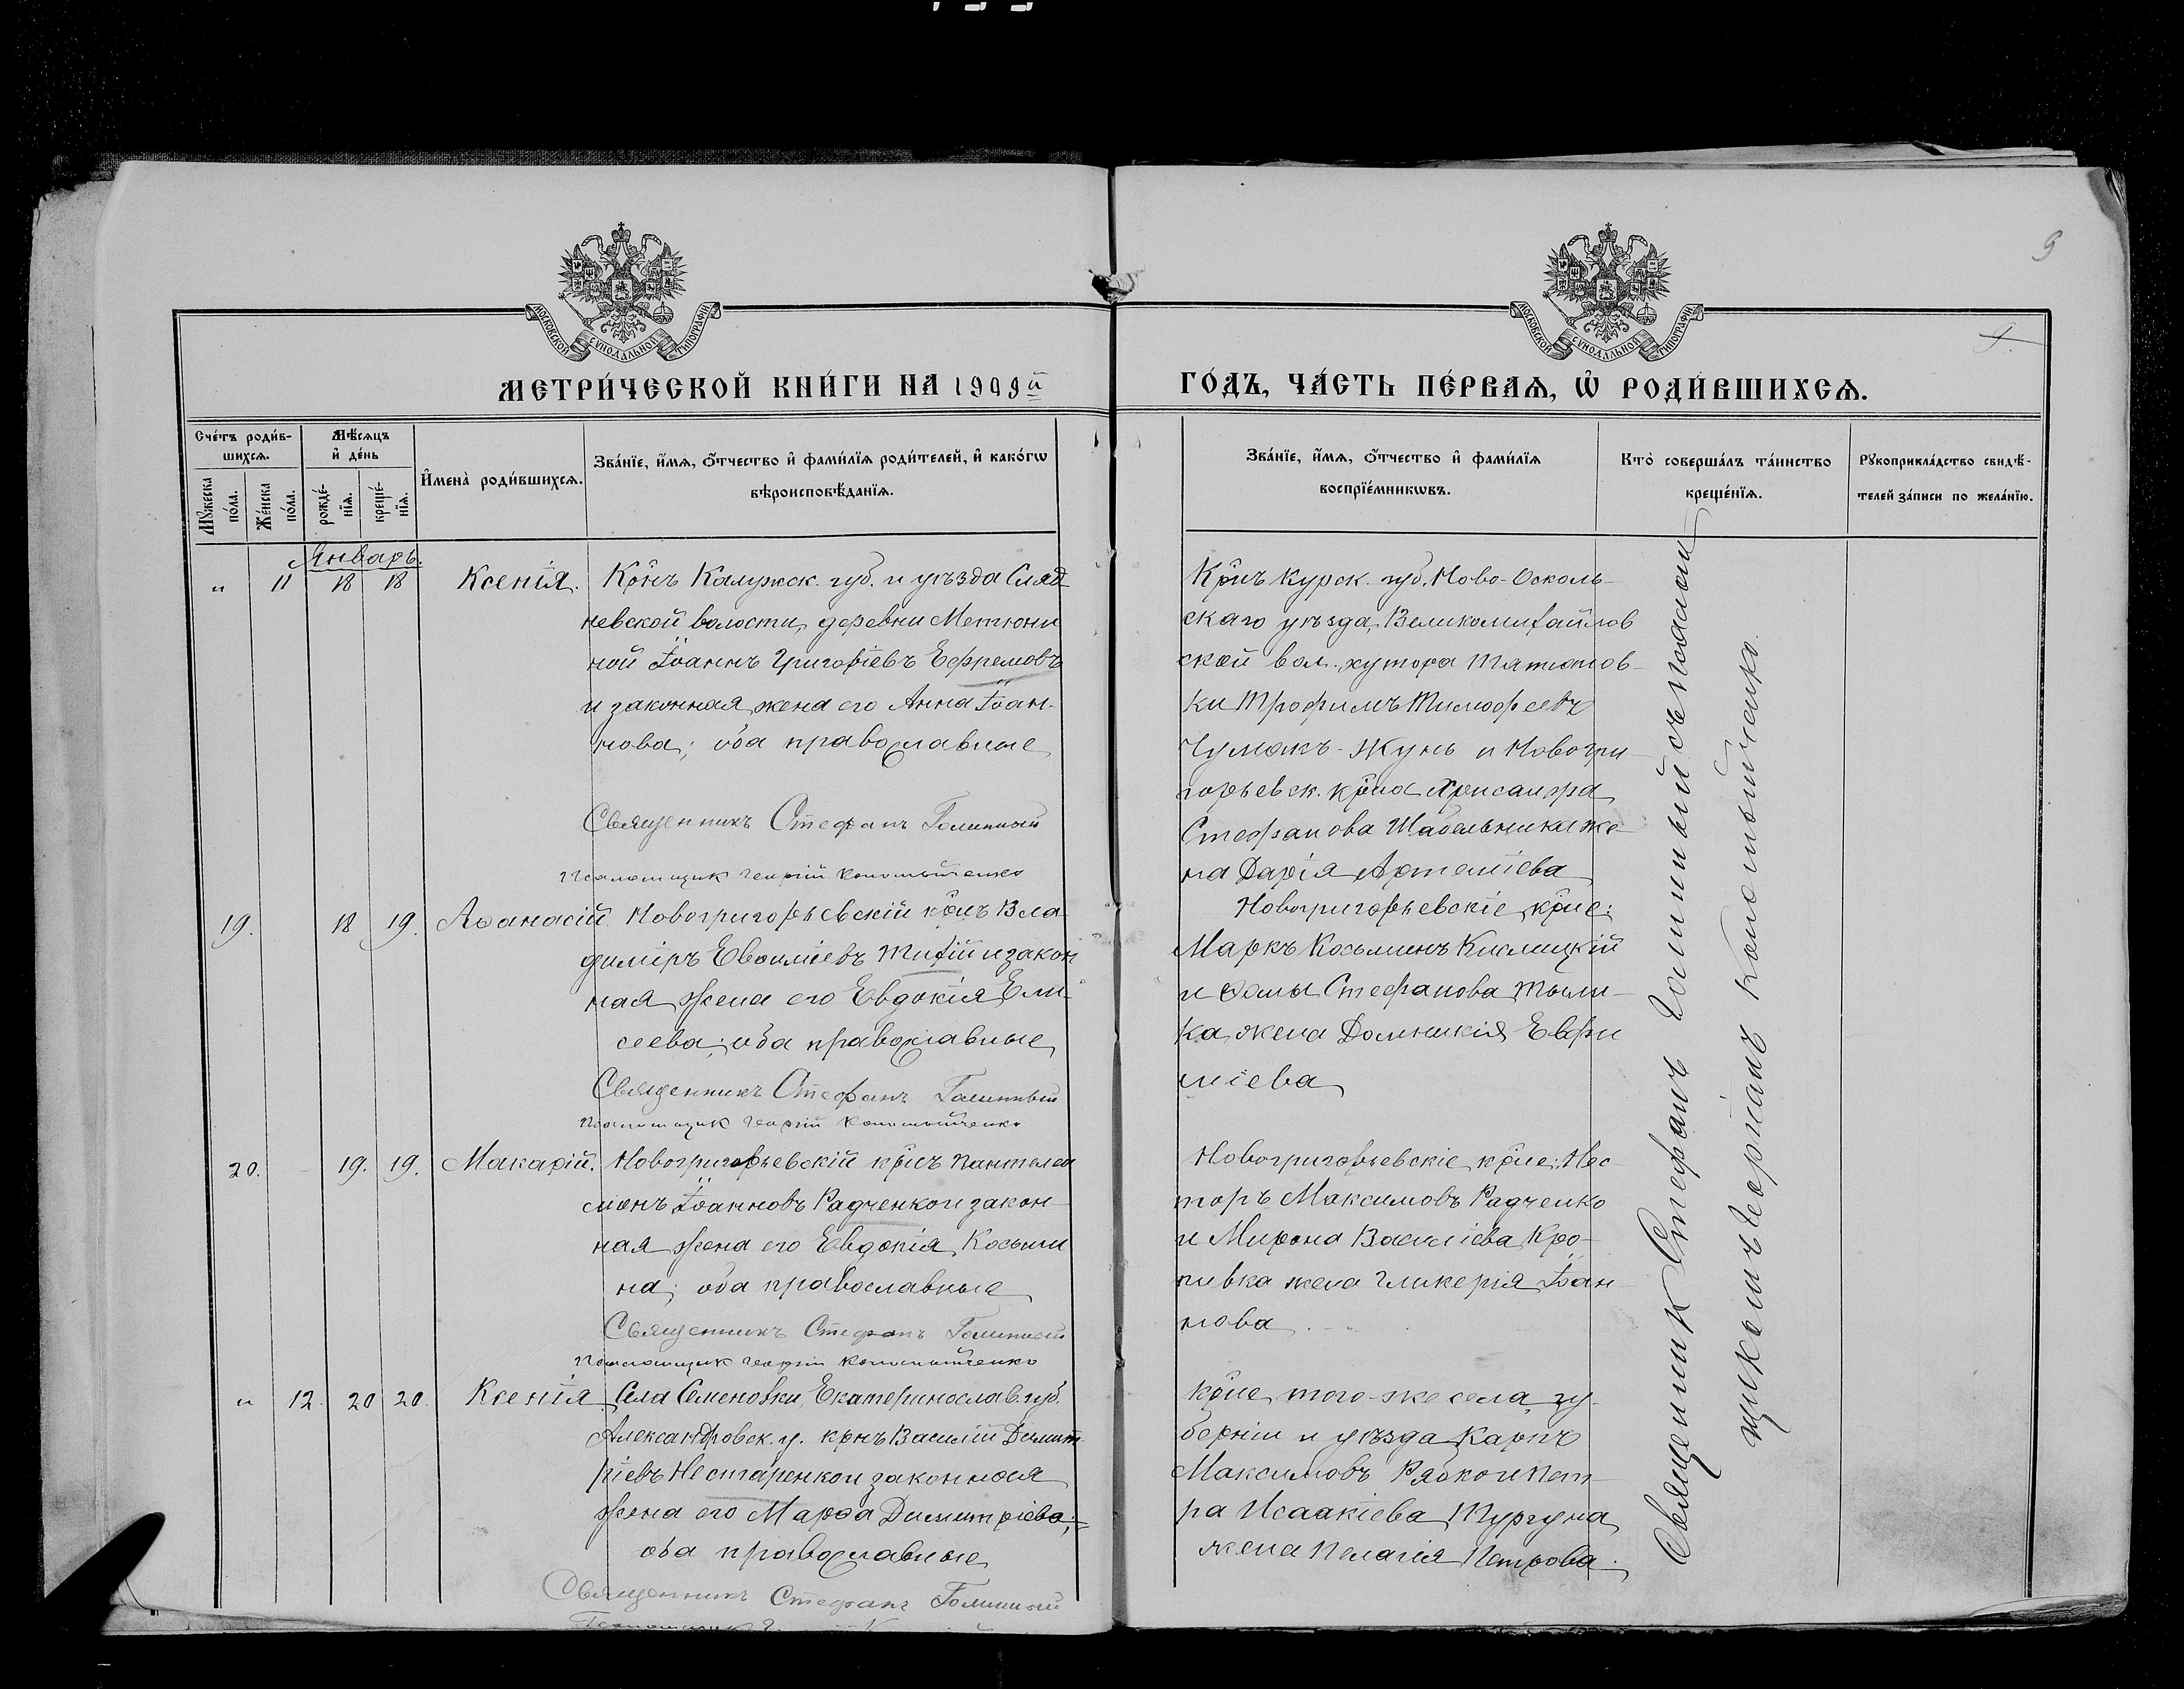 9
9.
МОСКОВСКОЙ СѴНОДАЛЬНОЙ ТИПОГРАФІИ
МОСКОВСКОЙ СѴНОДАЛЬНОЙ ТИПОГРАФІИ
МЕТРИ́ЧЕСКОЙ КНИ́ГИ НА 1909й
ГО́ДЪ, ЧА́СТЬ ПЕ́РВАѦ, Ѿ РОДИ́ВШИХСѦ.
Сче́тъ роди́в-
шихсѧ.
Мꙋ́жеска по́ла.
Же́нска по́ла.
Мѣ́сѧцъ
и҆ де́нь
рожде́-
нїѧ.
креще́-
нїѧ.
И҆мена̀ роди́вшихсѧ.
Зва́нїе, и҆́мѧ, ѻ҆́тчество и҆ фами́лїѧ роди́телей, и҆ како́гѡ
вѣроисповѣ́данїѧ.
Зва́нїе, и҆́мѧ, ѻ҆́тчество и҆ фами́лїѧ
воспрїе́мникѡвъ.
Кто̀ соверша́лъ та́инство
креще́нїѧ.
Рꙋкоприкла́дство свидѣ́-
телей за́писи по жела́нїю.
Январь.
" 11 18 18 Ксенія.
Крнъ Калужск. губ. и уѣзда Сляд
невской волости, деревни Метюни
ной Іоаннъ Григоріевъ Ефремовъ
и законная жена его Анна Іоан-
нова; оба православные
Священникъ Стефанъ Голинный
Псаломщик Георгій Коломыйченко
Крнъ Курск. губ. Ново-Осколь-
скаго уѣзда, Великомихайлов
ской вол. хутора
ки Трофимъ Тимофеевъ
Чумакъ-Жунь и Новогри-
горьевск. крна Хрисанфа
Стефанова Шабельника же-
на Дарія Артеміева
19. 18 19. Аѳанасій.
Новогригорьевскій крнъ Вла-
диміръ Евѳиміевъ Тихій и закон
ная жена его Евдокія Ели-
сеева; оба православные
Священникъ Стефанъ Голинный
Псаломщик Георгій Коломыйченко
Новогригорьевскіе крне:
Маркъ Косьминъ Кислицкій
и Ѳомы Стефанова
ка жена Домникія Евфи
міева
20. 19. 19. Макарій.
Новогригорьевскій крнъ Пантелеи
монъ Іоанновъ Радченко и закон-
ная жена его Евдокія Косьми
на; оба православные
Священникъ Стефанъ Голинный
Псаломщик Георгій Коломыйченко
Новогригорьевскіе крне: Нес-
торъ Максимовъ Радченко
и Мирона Василіева Кро-
пивка жена Гликерія Іоан-
нова.
" 12. 20 20. Ксенія
Села Семеновки, Екатеринослав. губ.
Александровск. у. крнъ Василій Димит-
ріевъ Нестаренко и законная
жена его Марѳа Димитріева;
оба православные
Священникъ Стефанъ Голинный
Псаломщик
крне того-же села, гу-
берніи и уѣзда Карпъ
Максимовъ Рябко и Пет-
ра Исаакіева Тургуна
жена Пелагія Петрова.
Священник Стефанъ Голинный съ псаломщ
щикомъ Георгіемъ Коломыйченко.